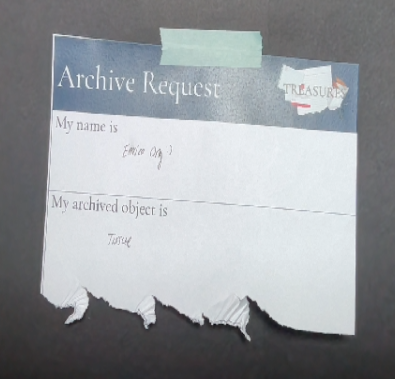 Archive Request
TREASURES
My name is
My archived object is
Tissue